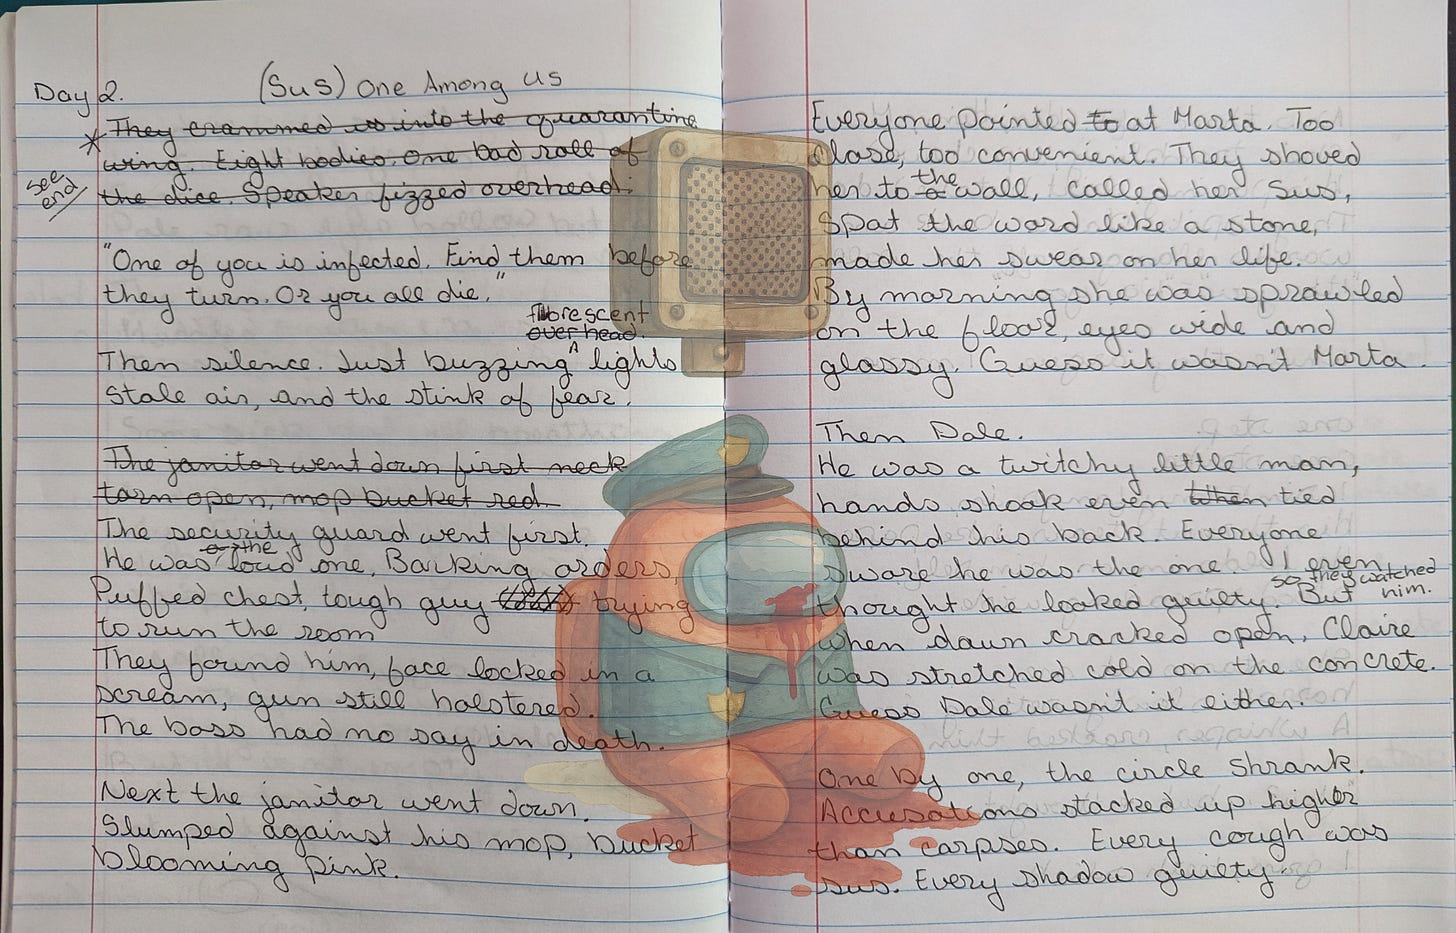 Day 2. (Sus) One Among Us
They crammed us into the quarantine
wing. Eight bodies. One bad roll of
the dice. Speaker fizzed overhead:
see
end
"One of you is infected. Find them before
they turn. Or you all die."
fluorescent
overhead
Then silence. Just buzzing lights
Stale air, and the stink of fear.
The janitor went down first neck
torn open, mop bucket red.
The security guard went first.
or the
He was loud one, Barking orders,
Puffed chest, tough guy trying
to run the room
They found him, face locked in a
scream, gun still holstered.
The boss had no say in death.
Next the janitor went down.
Slumped against his mop, bucket
blooming pink.
Everyone pointed to at Marta. Too
close, too convenient. They shoved
the
her to a wall, called her sus,
Spat the word like a stone,
made her swear on her life.
By morning she was sprawled
on the floor, eyes wide and
glassy. Guess it wasn't Marta.
Then Dale.
He was a twitchy little man,
hands shook even when tied
behind his back. Everyone
swore he was the one I even
so they watched
him.
thought he looked guilty. But
when dawn cracked open, Claire
was stretched cold on the concrete.
Guess Dale wasn't it either.
One by one, the circle shrank.
Accusations stacked up higher
than corpses. Every cough was
sus. Every shadow guilty.